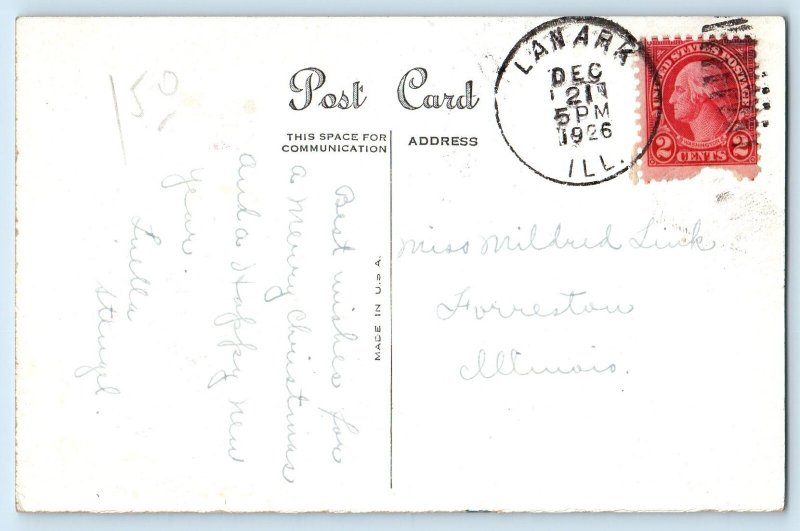 Post Card
THIS SPACE FOR
COMMUNICATION
ADDRESS
LANARK
DEC
21
5 PM
1926
ILL.
UNITED STATES POSTAGE
WASHINGTON
2 CENTS 2
Best wishes for
a Merry Christmas
and a Happy New
Year.
Luella
Stengel.
MADE IN U.S.A.
Miss Mildred Link
Forreston
Illinois.